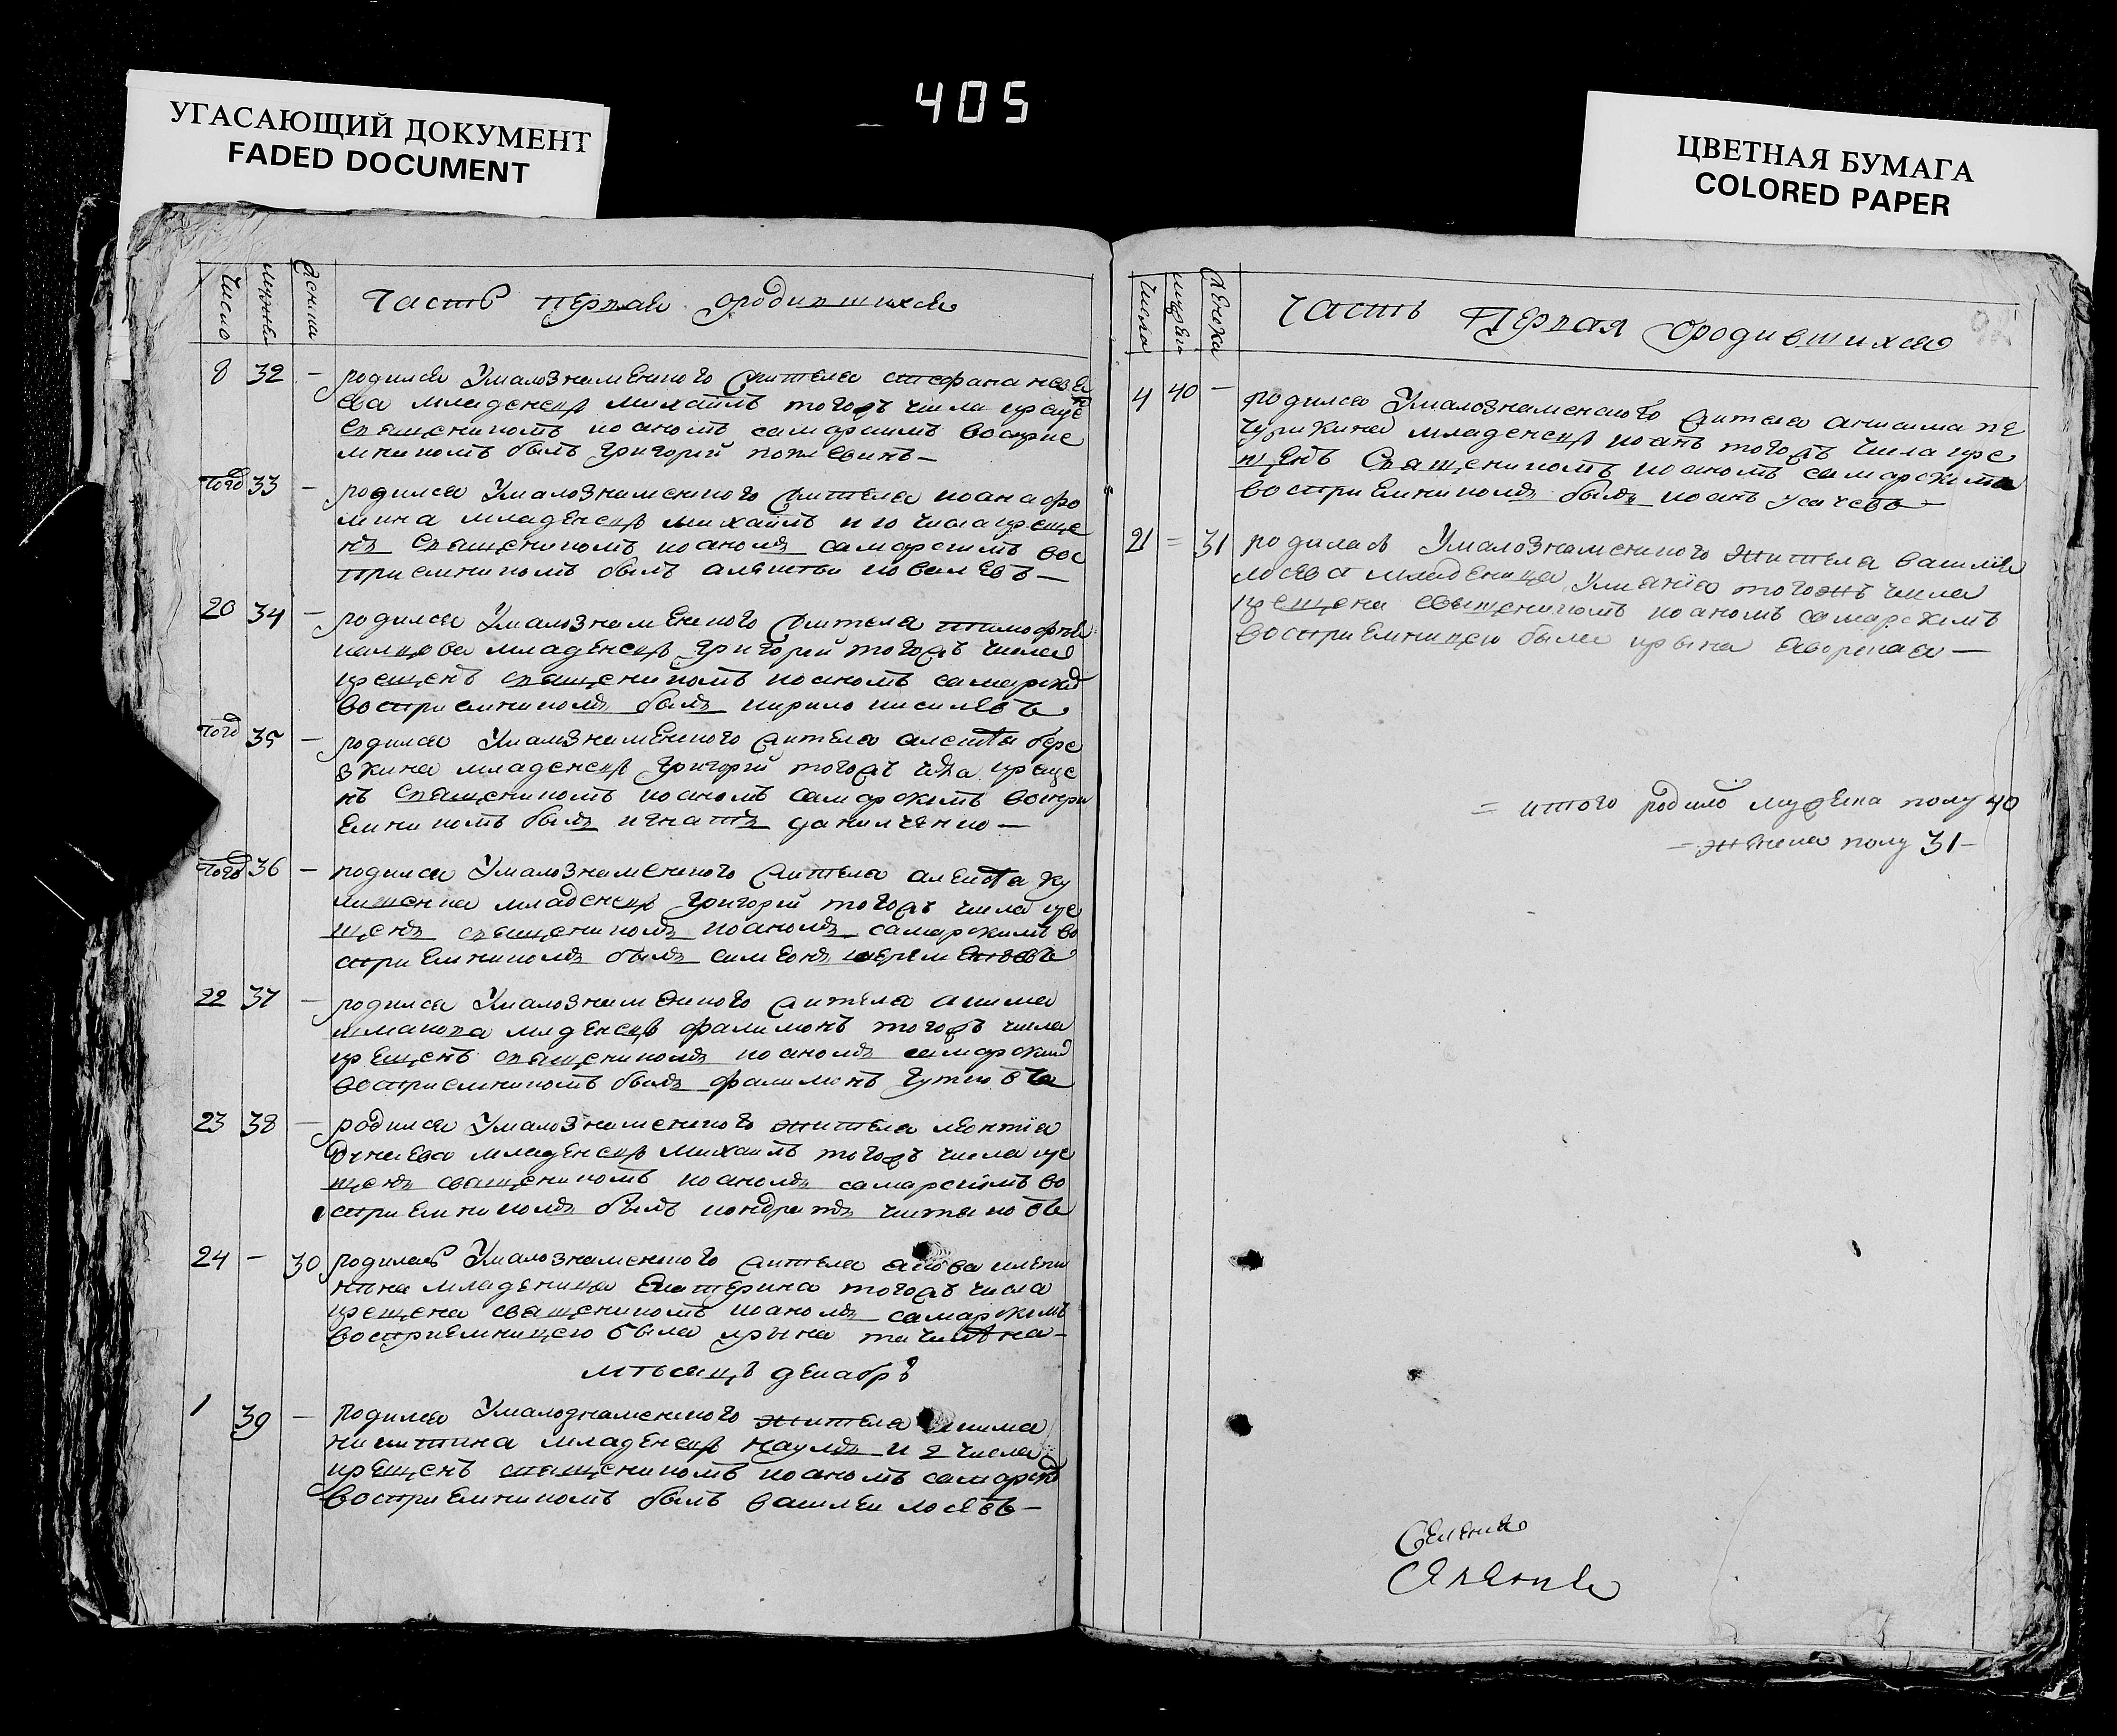 405
УГАСАЮЩИЙ ДОКУМЕНТ
FADED DOCUMENT
ЦВЕТНАЯ БУМАГА
COLORED PAPER
Число
мужеска
женска
Часть первая ородившихся
8 32 – родился Умалознаменского жителя стефана
ева младенецъ михаилъ тогожъ числа креще
священникомъ иоаномъ самарскимъ восприе
мникомъ былъ григорей
тогож 33 – родился Умалознаменского жителя иоана фо
мина младенецъ михаилъ и 10 числа креще
нъ священникомъ иоаномъ самарскимъ вос
приемникомъ былъ алексеи ковалевъ –
20 34 – родился Умалознаменского жителя тимофея
калцова младенецъ григорей тогожъ числа
крещенъ священникомъ иоаномъ самарским
восприемникомъ былъ кирило киселевъ
тогож 35 – родился Умалознаменского жителя алексея бере
зкина младенецъ григорей тогожъ чсла креще
нъ священникомъ иоаномъ самарскимъ воспри
емникомъ былъ игнатъ данилченко –
тогож 36 – родился Умалознаменского жителя алексея ку
младенецъ григорей тогожъ числа кре
щенъ священникомъ иоаномъ самарскимъ во
сприемникомъ былъ симеонъ
22 37 – родился Умалознаменского жителя акима
шмакова младенецъ филимонъ тогожъ числа
крещенъ священникомъ иоаномъ самарским
восприемникомъ былъ филимонъ
23 38 – родился Умалознаменского жителя леонтïа
младенецъ михаилъ тогожъ числа кре
щенъ священникомъ иоаномъ самарскимъ во
сприемникомъ былъ кондратъ
24 – 30 родилась Умалознаменского жителя якова
младеница екатерина тогожъ числа
крещена священникомъ иоаномъ самарскимъ
восприемницею была ирына
мѣсяцъ декабръ
1 39 – родился Умалознаменского жителя акима
никитина младенецъ наумъ и 2 числа
крещенъ священникомъ иоаномъ самарским
восприемникомъ былъ василеи лосевъ –
Числа
мужеск
женска
Часть Первая ородившихся
4 40 – родился Умалознаменского жителя анисима пе
чурикина младенецъ иоанъ тогожъ числа кре
щенъ Священникомъ иоаномъ самарскимъ
восприемникомъ былъ иоанъ усачевъ –
21 = 31 родилась Умалознаменского жителя василïя
лосева младеница Улианïа тогожъ числа
крещена священникомъ иоаномъ самарскимъ
восприемницею была ирына –
= итого родило мужеска полу 40
– женска полу 31 –